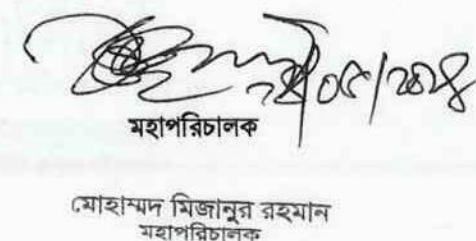 মহাপরিচালক
মোহাম্মদ মিজানুর রহমান
মহাপরিচালক